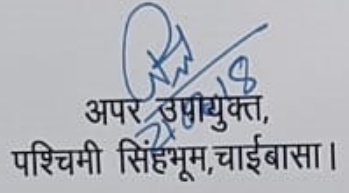 अपर उपायुक्त,
पश्चिमी सिंहभूम,चाईबासा।